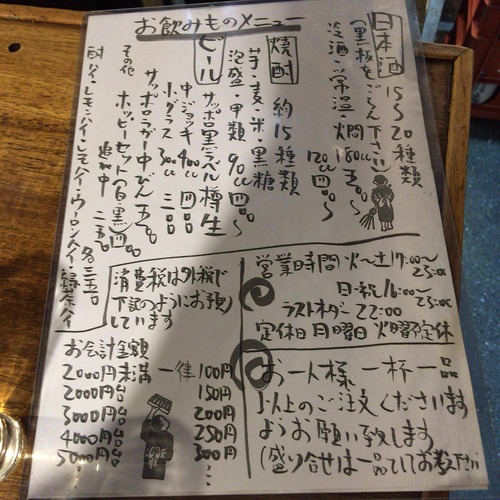 お飲みものメニュー
日本酒 15〜20種類
(黒板をごらん下さい)
冷酒・常温・燗 180cc 五〇〇〜
120cc 四〇〇〜
焼酎 約15種類
芋・麦・米・黒糖
泡盛・甲類 90cc 四〇〇〜
ビール
サッポロ黒ラベル樽生
中ジョッキ 400cc 四〇〇
小グラス 300cc 三〇〇
サッポロラガー中びん 五〇〇
ホッピーセット(白・黒) 四〇〇
追加中 二五〇
その他
酎ハイ・レモンハイ・しそハイ・ウーロンハイ・緑茶ハイ
各三五〇
消費税は外税で
下記のようにお預り
しています
お会計金額
2000円未満 一律 100円
2000円台 150円
3000円台 200円
4000円台 250円
5000円台 300円
営業時間 火〜土 17:00〜
23:00
日・祝 16:00〜
23:00
ラストオーダー 22:00
定休日 月曜日 火曜不定休
お一人様 一杯一品
以上のご注文くださいます
ようお願い致します